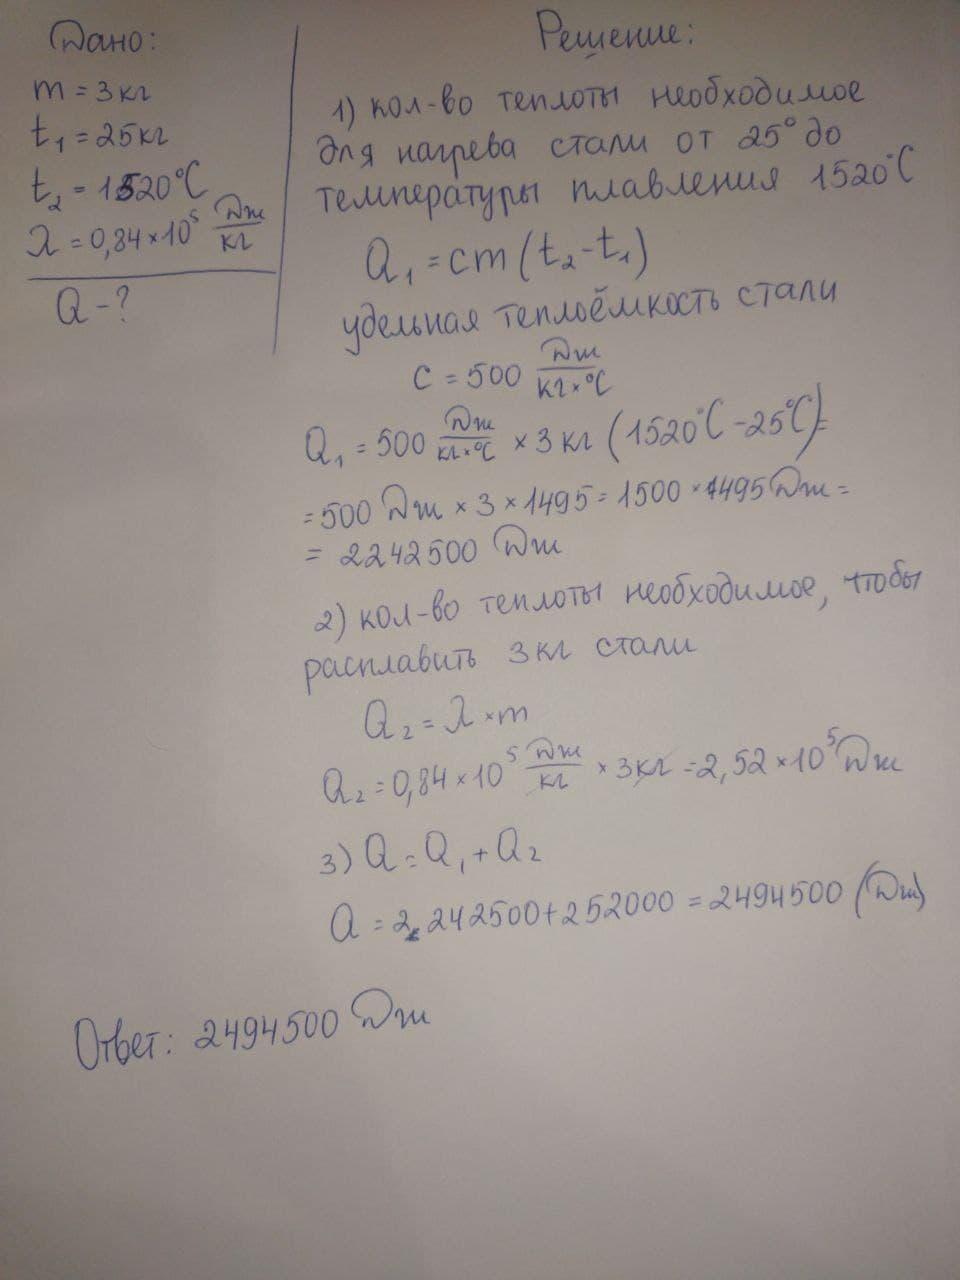 Дано:
m = 3 кг
t₁ = 25 кг
t₂ = 1520°C
λ = 0,84 × 10⁵ Дж/кг
Q - ?
Решение:
1) кол-во теплоты необходимое
для нагрева стали от 25° до
температуры плавления 1520°C
Q₁ = cm (t₂ - t₁)
удельная теплоёмкость стали
C = 500 Дж/кг×°C
Q₁ = 500 Дж/кг×°C × 3 кг (1520°C - 25°C) =
= 500 Дж × 3 × 1495 = 1500 × 1495 Дж =
= 2242500 Дж
2) кол-во теплоты необходимое, чтобы
расплавить 3 кг стали
Q₂ = λ × m
Q₂ = 0,84 × 10⁵ Дж/кг × 3 кг = 2,52 × 10⁵ Дж
3) Q = Q₁ + Q₂
Q = 2 242500 + 252000 = 2494500 (Дж)
Ответ: 2494500 Дж